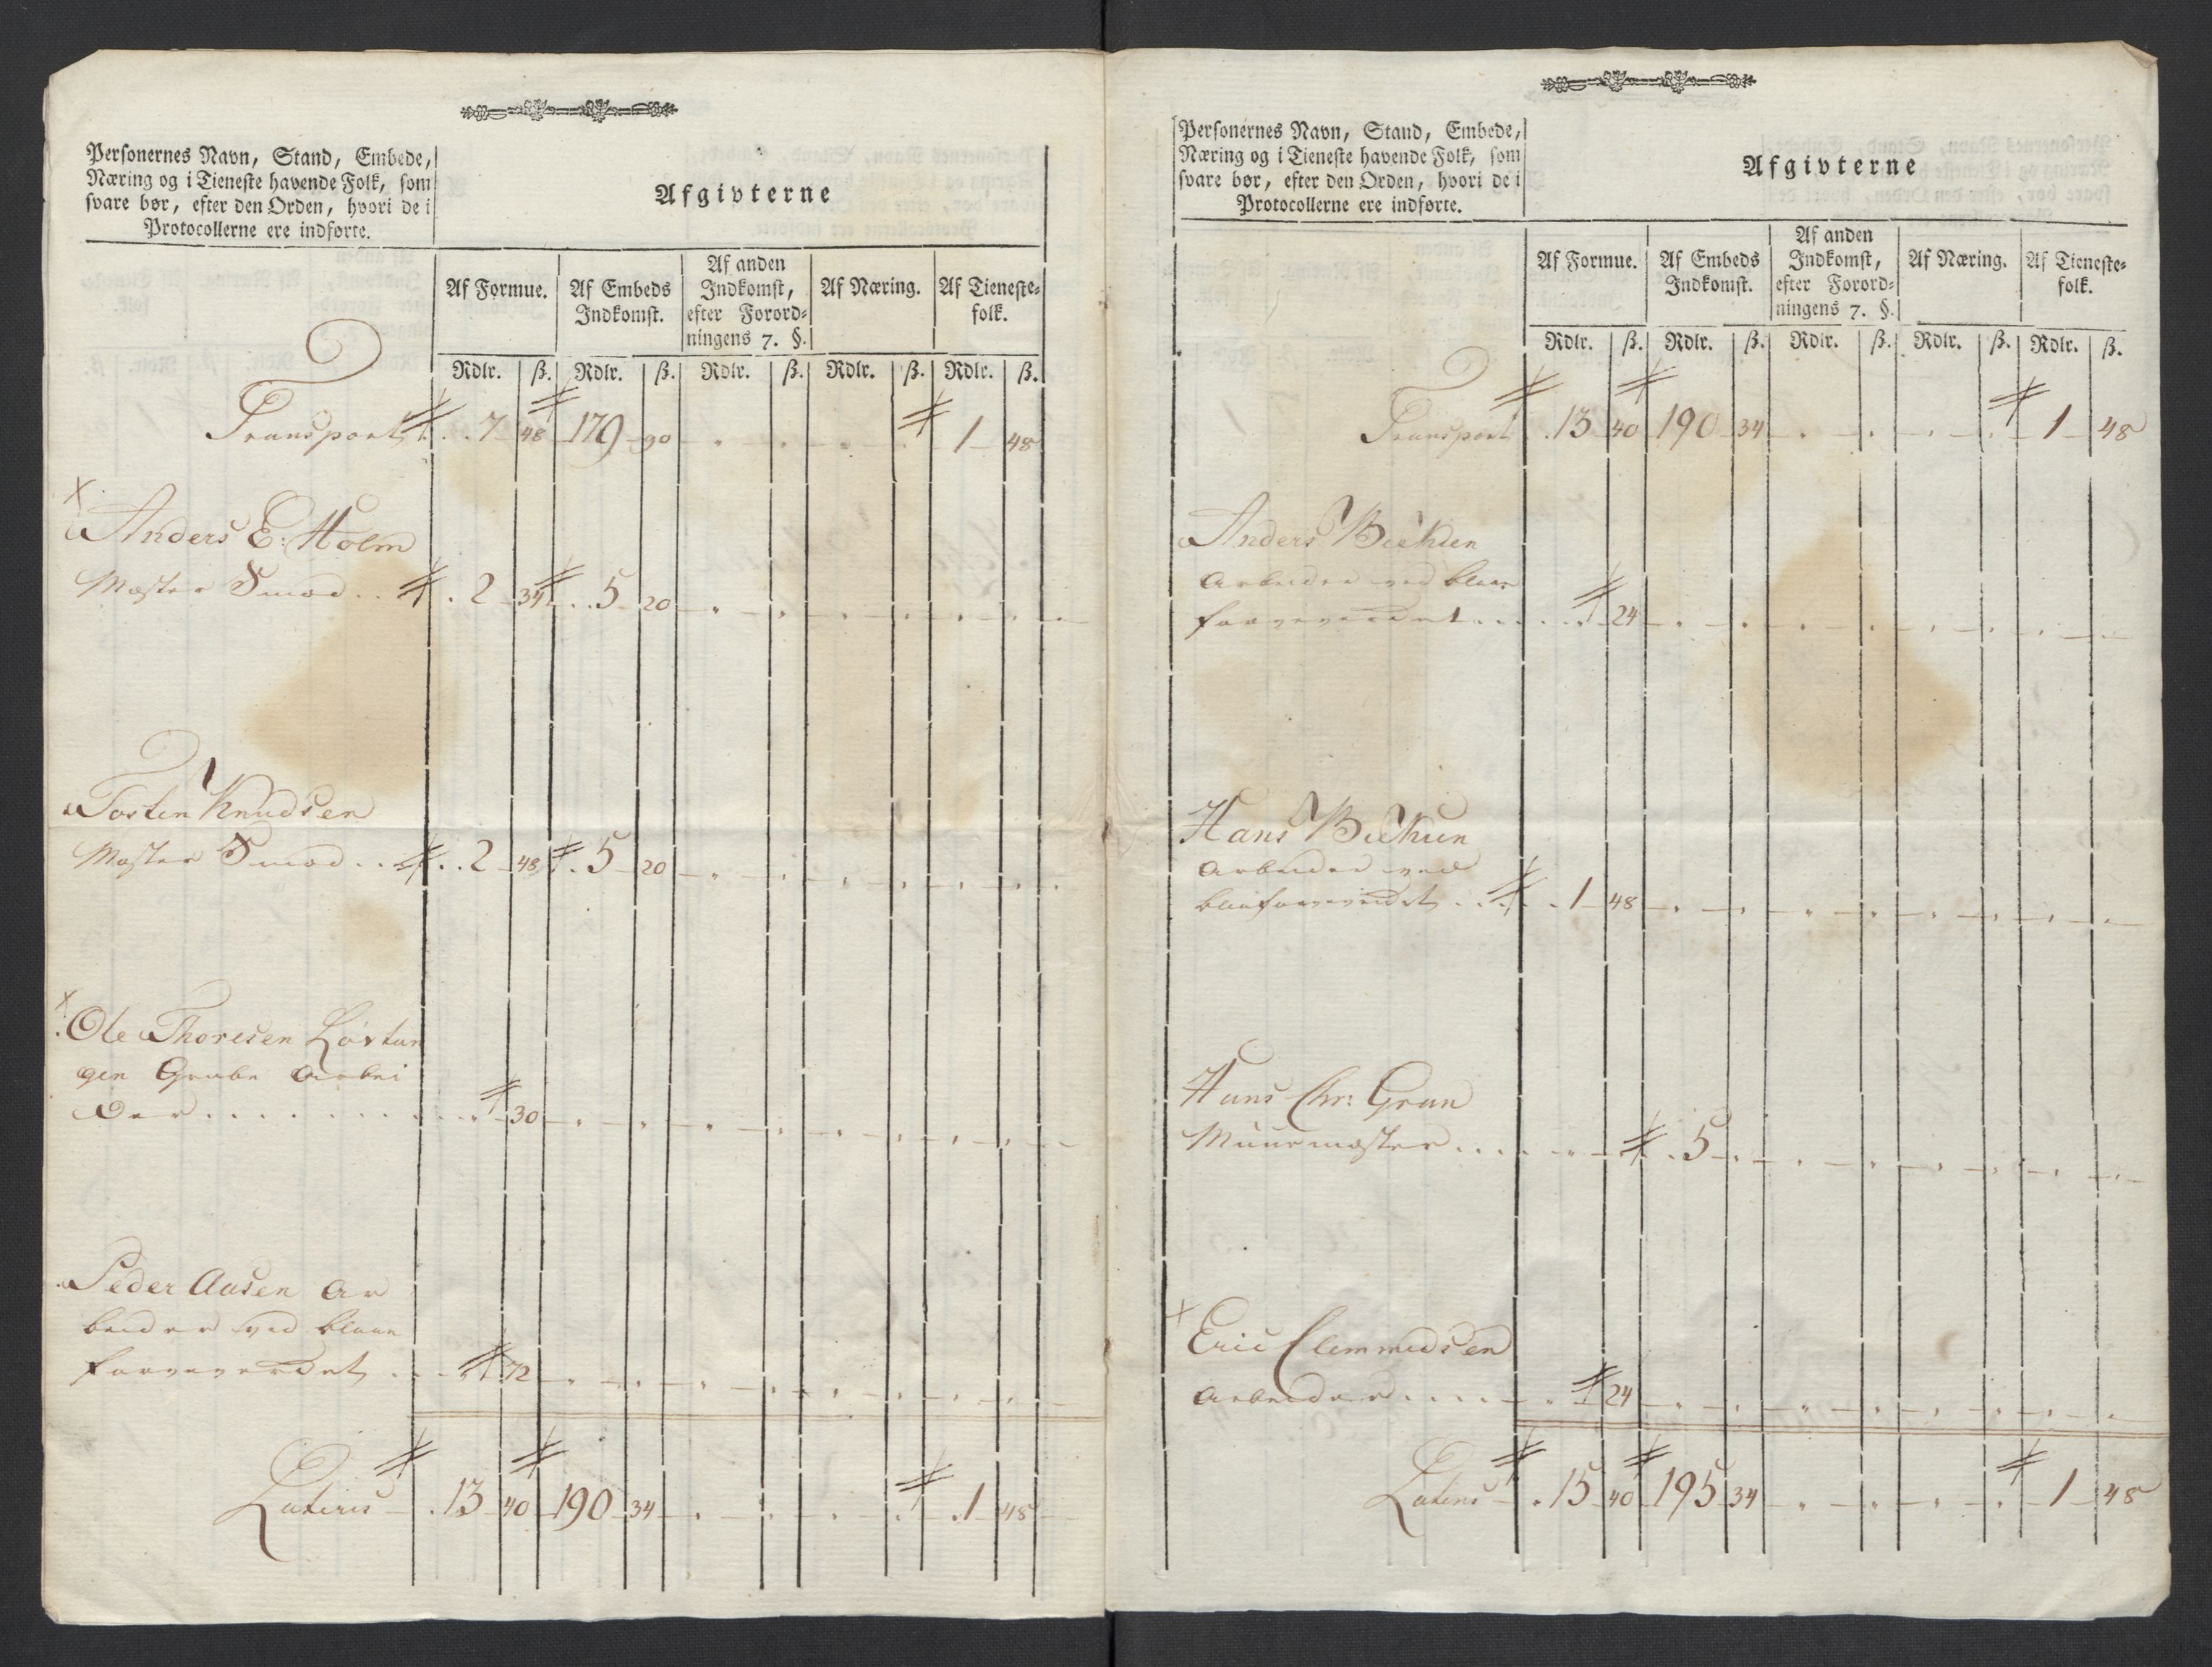 Personernes Navn, Stand, Embede,
Næring og i Tieneste havende Folk, som
svare bør, efter den Orden, hvori de i
Protocollerne ere indførte.
Afgivterne
Af Formue.
Af Embeds
Indkomst.
Af anden
Indkomst,
efter Forord-
ningens 7. §.
Af Næring.
Af Tieneste-
folk.
Rdlr. ß. Rdlr. ß. Rdlr. ß. Rdlr. ß. Rdlr. ß.
Transport 7 48 179 90 1 48
Anders E. Holm
Mester Smed 2 34 5 20
Tosten Knudsen
Mester Smed 2 48 5 20
Ole Thoresen Løvtun
gen Grube Arbei
der 30
Peder Aasen Ar
beider ved blaae
farveverket 72
Lateris 13 40 190 34 1 48
Personernes Navn, Stand, Embede,
Næring og i Tieneste havende Folk, som
svare bør, efter den Orden, hvori de i
Protocollerne ere indførte.
Afgivterne
Af Formue.
Af Embeds
Indkomst.
Af anden
Indkomst,
efter Forord-
ningens 7. §.
Af Næring.
Af Tieneste-
folk.
Rdlr. ß. Rdlr. ß. Rdlr. ß. Rdlr. ß. Rdlr. ß.
Transport 13 40 190 34 1 48
Anders
Arbeider ved blaae
farveverket 24
Hans
Arbeider ved
blaafarveverket 1 48
Hans Chr: Gran
Muurmester 5
Eric Clemmedsen
Arbeider 24
Lateris 15 40 195 34 1 48